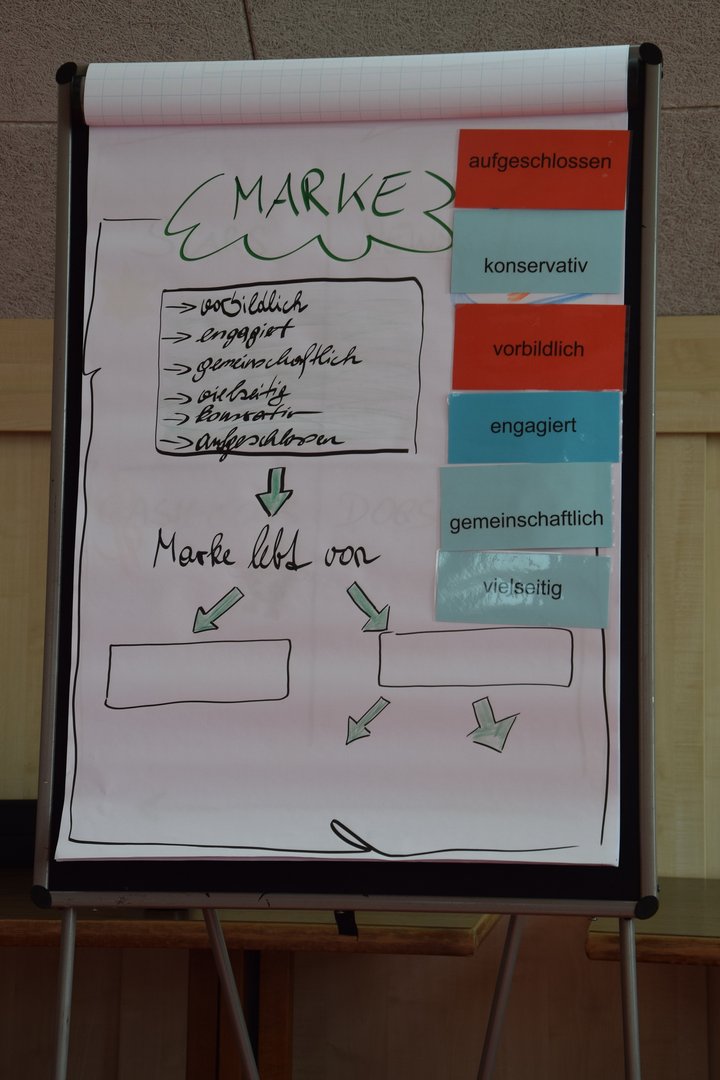 MARKE
→ vorbildlich
→ engagiert
→ gemeinschaftlich
→ vielseitig
→ konservativ
→ aufgeschlossen
Marke lebt von
aufgeschlossen
konservativ
vorbildlich
engagiert
gemeinschaftlich
vielseitig